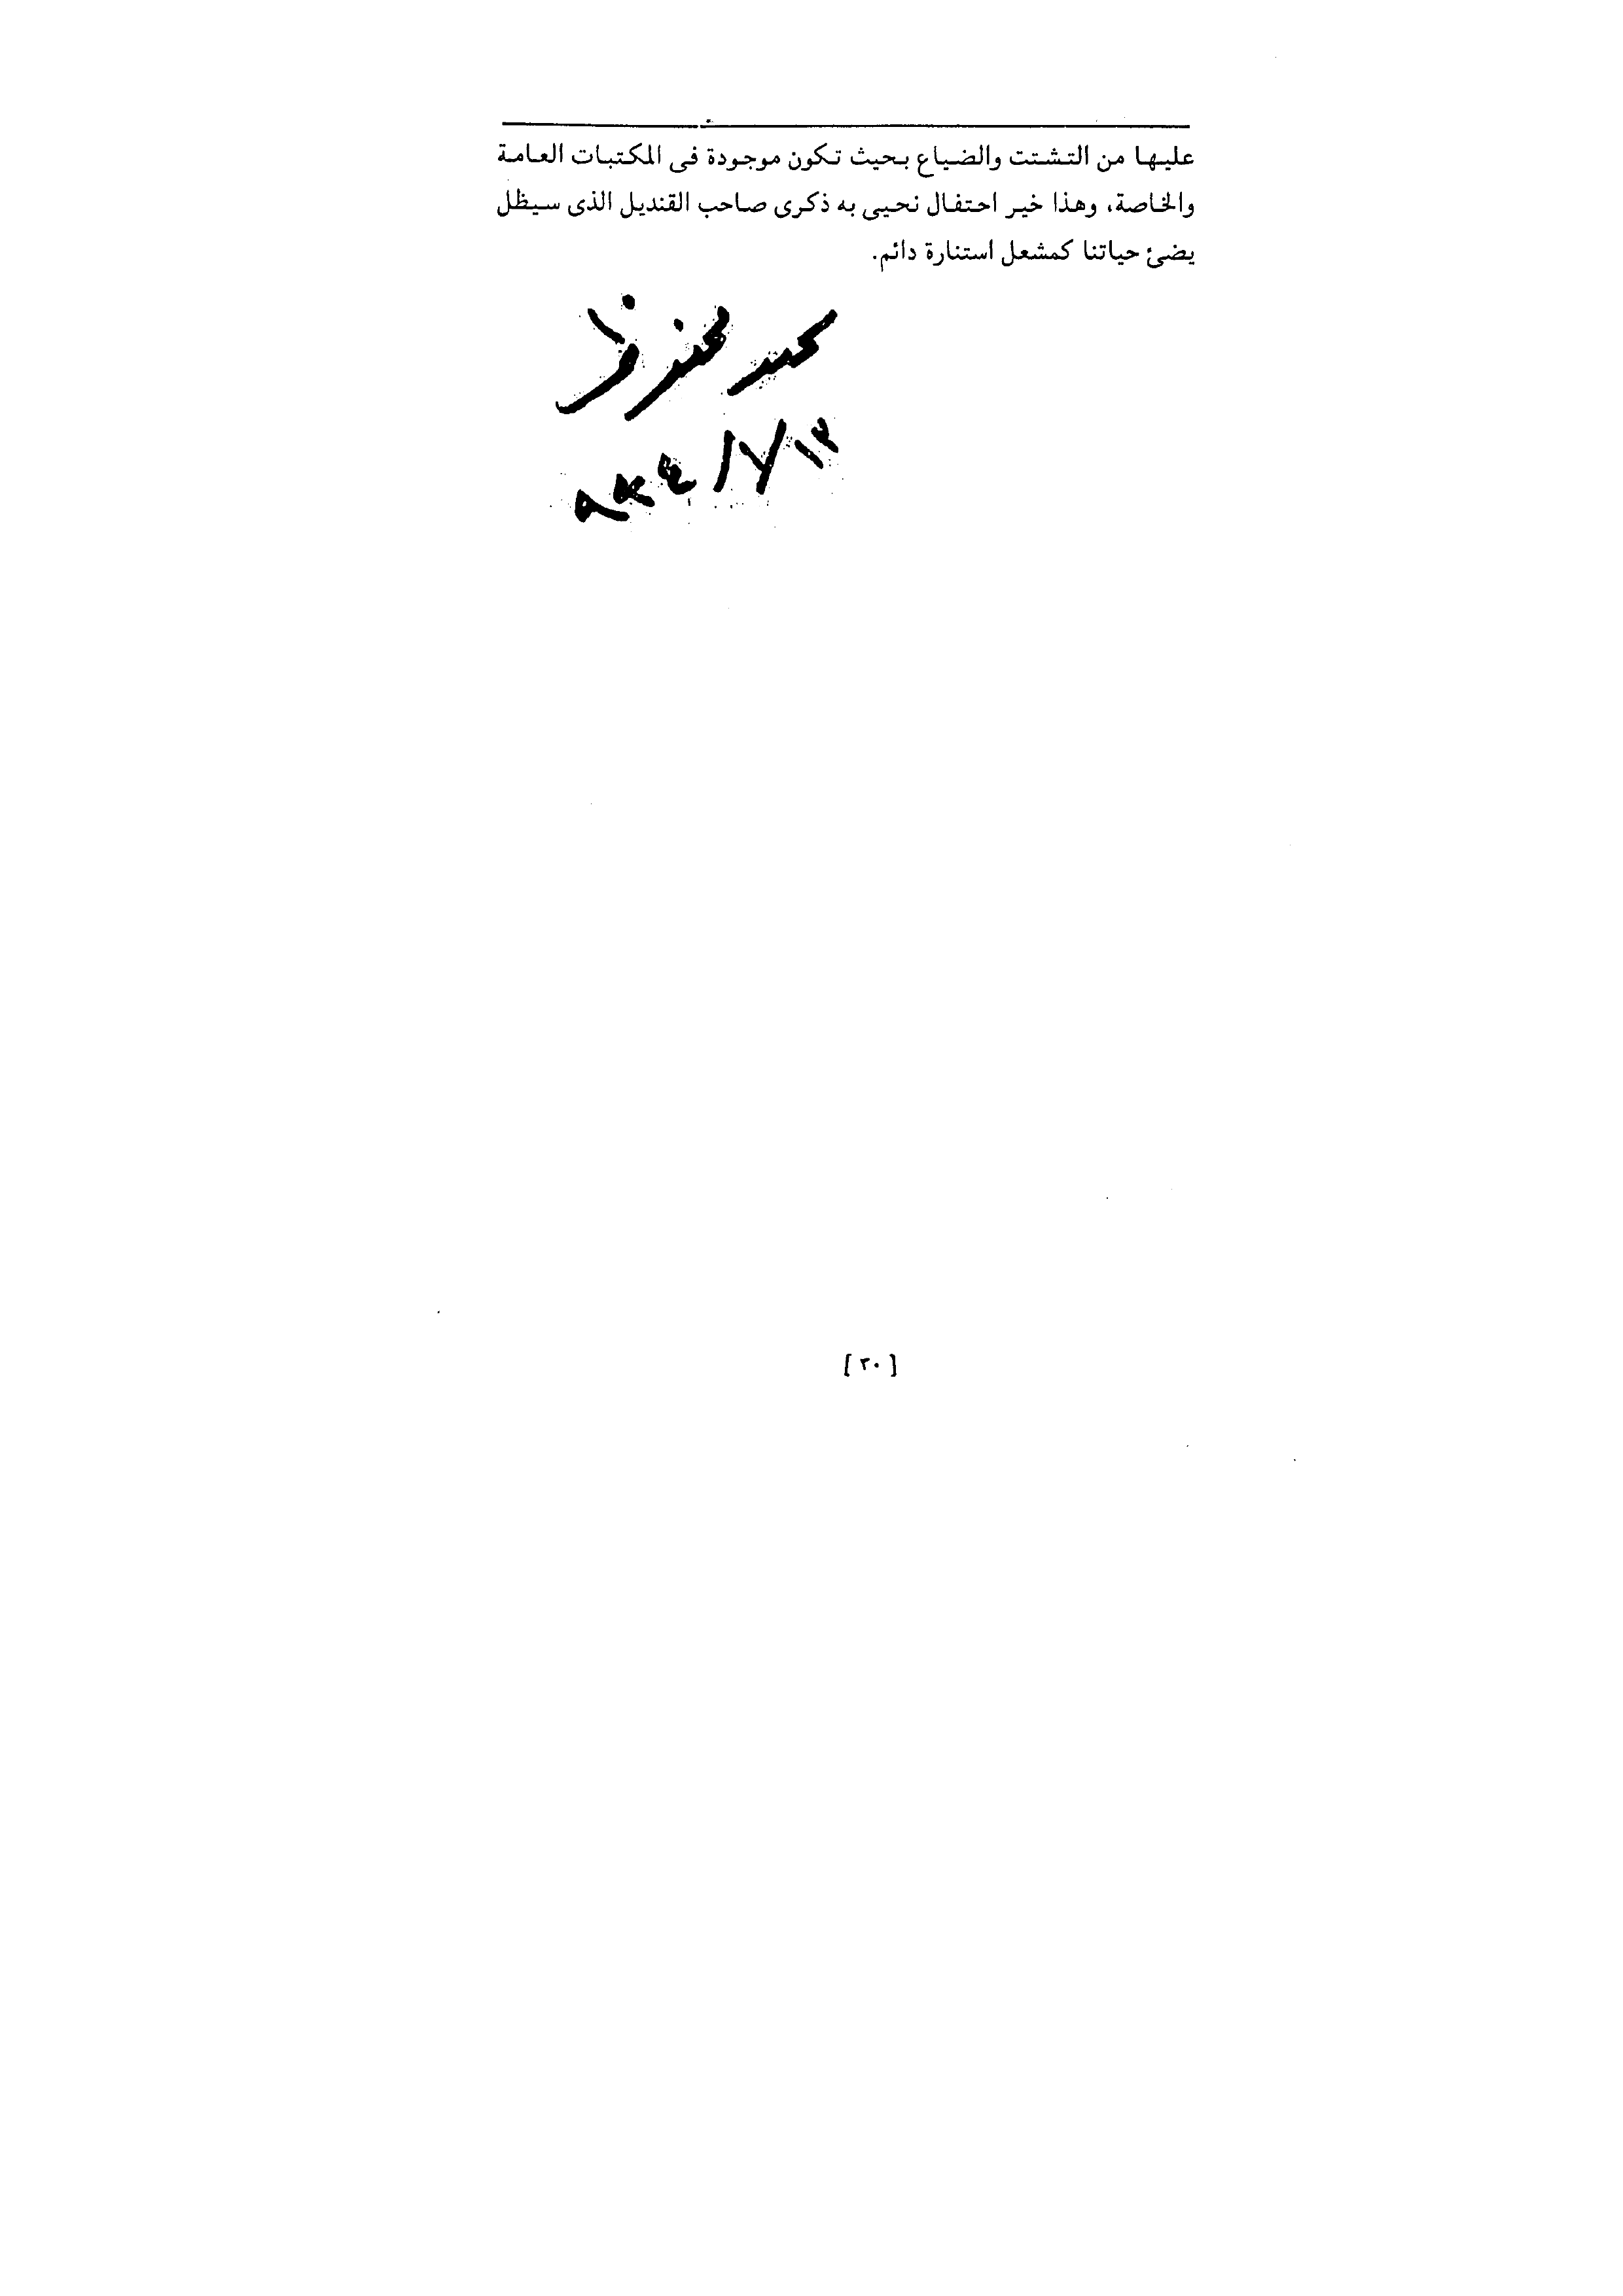 عليها من التشتت والضياع بحيث تكون موجودة فى المكتبات العامة
والخاصة، وهذا خير احتفال نحيى به ذكرى صاحب القنديل الذى سيظل
يضئ حياتنا كمشعل استنارة دائم.
محمد محفوظ
[ ٣٠ ]